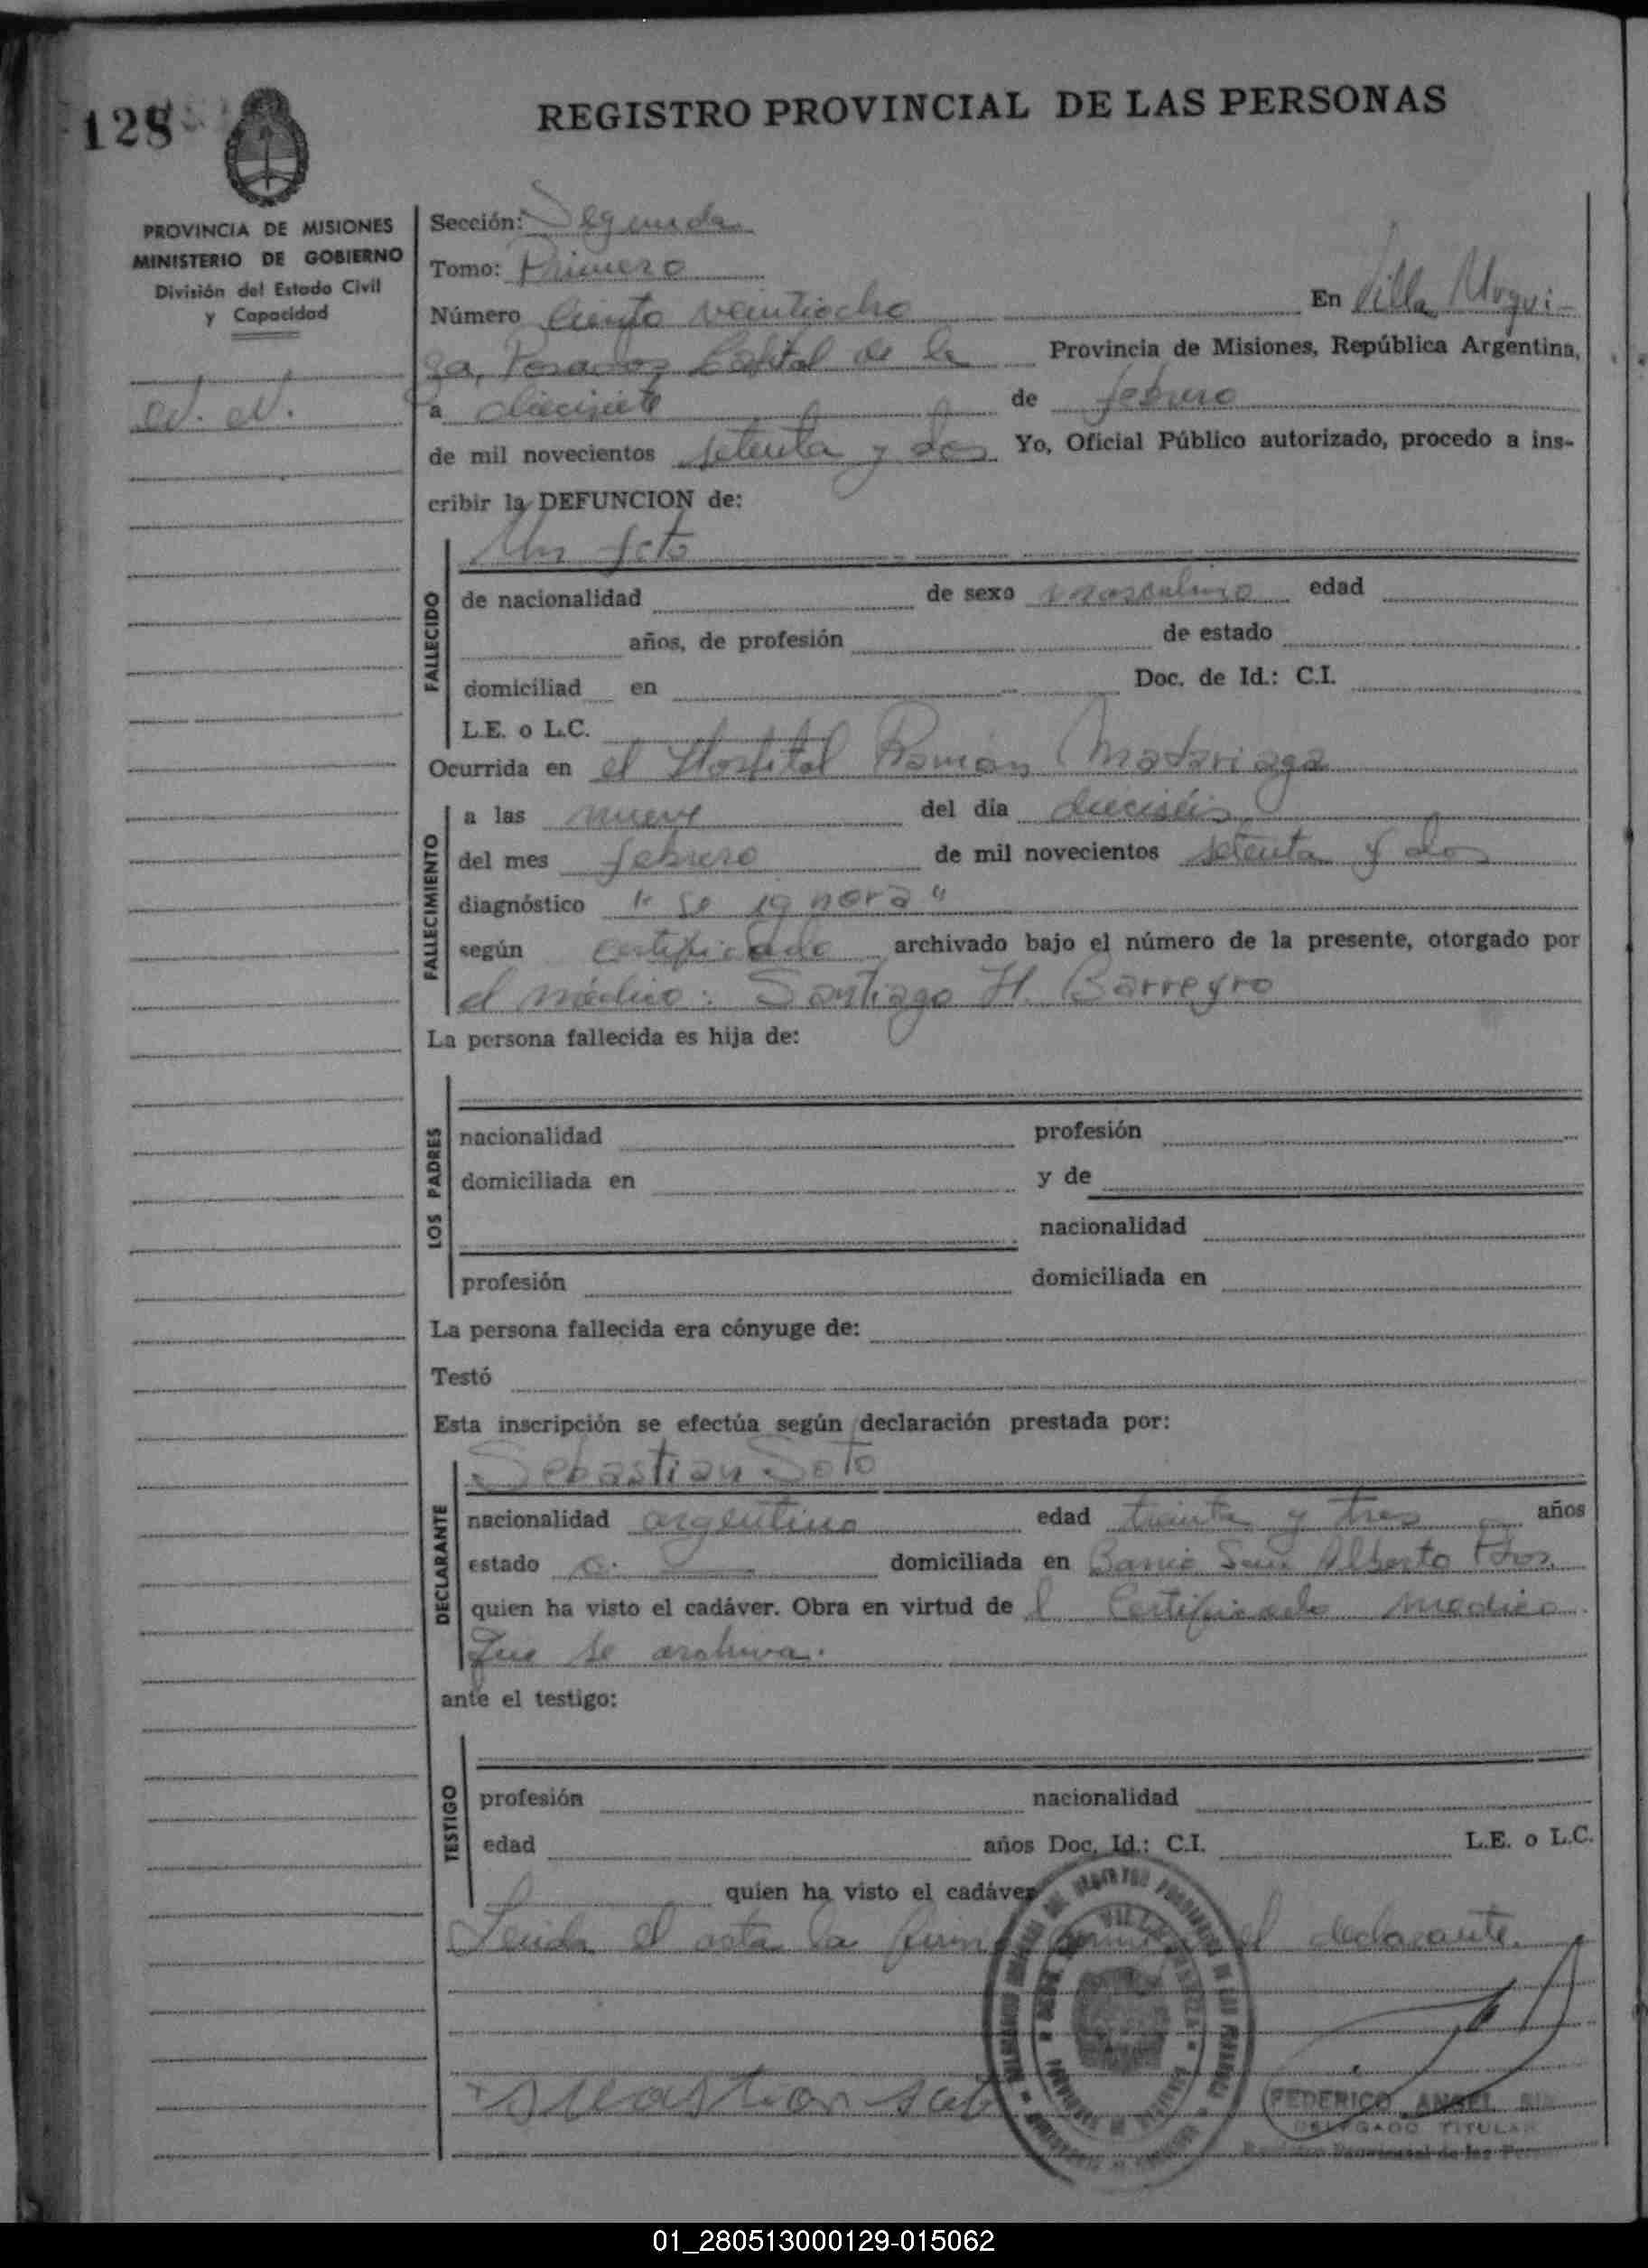 128
REGISTRO PROVINCIAL DE LAS PERSONAS
PROVINCIA DE MISIONES
MINISTERIO DE GOBIERNO
División del Estado Civil
y Capacidad
Sección: Segunda
Tomo: Primero
Número Ciento veintiocho En Villa Urqui-
za, Posadas Capital de la Provincia de Misiones, República Argentina,
a diecisiete de febrero
de mil novecientos setenta y dos Yo, Oficial Público autorizado, procedo a ins-
cribir la DEFUNCION de:
Un feto
FALLECIDO
de nacionalidad de sexo masculino edad
años, de profesión de estado
domiciliad en Doc. de Id.: C.I.
L.E. o L.C.
Ocurrida en el Hospital Ramón Madariaga
FALLECIMIENTO
a las nueve del día dieciséis
del mes febrero de mil novecientos setenta y dos
diagnóstico "se ignora"
según certificado archivado bajo el número de la presente, otorgado por
el médico: Santiago H. Barreyro
La persona fallecida es hija de:
LOS PADRES
nacionalidad profesión
domiciliada en y de
nacionalidad
profesión domiciliada en
La persona fallecida era cónyuge de:
Testó
Esta inscripción se efectúa según declaración prestada por:
Sebastian Soto
DECLARANTE
nacionalidad argentino edad treinta y tres años
estado domiciliada en Barrio San Alberto Pdos.
quien ha visto el cadáver. Obra en virtud de l Certificado médico
que se archiva.
ante el testigo:
TESTIGO
profesión nacionalidad
edad años Doc. Id.: C.I. L.E. o L.C.
quien ha visto el cadáver
Leida el acta la firma el declarante.
FEDERICO ANGEL
DELEGADO TITULAR
Registro Provincial de las Per
01_280513000129-015062